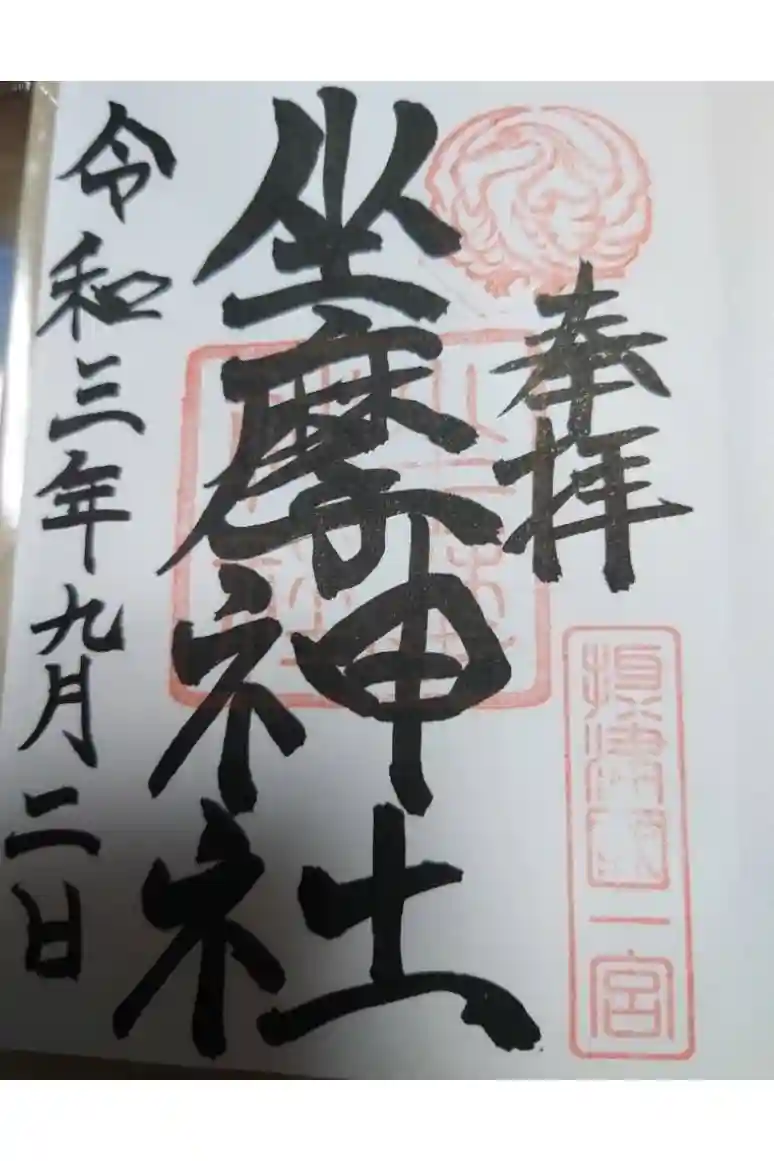 奉拝
摂津國一宮
坐摩神社
令和三年九月二日